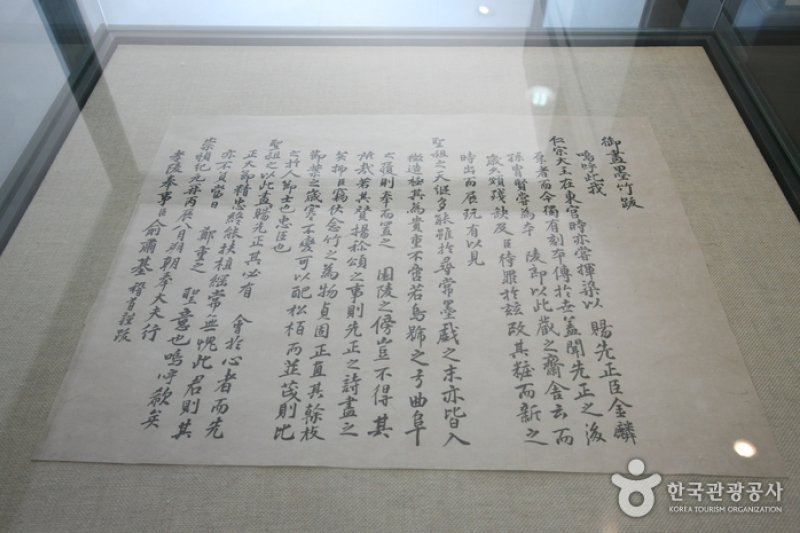 御畫墨竹跋
嗚呼此我
仁宗大王在東宮時亦嘗揮染以 賜先正臣金麟
厚者而今獨有刻本傳於世蓋聞先正之後
孫嘗爲本 陵郎以此藏之齋舍云而
歲久頗殘缺及臣待罪於玆改其粧而新之
時出而展玩有以見
聖祖之天縱多能雖於尋常墨戲之末亦皆入
微造極其爲貴重不啻若烏號之弓曲阜
之後則奉而置之 園陵之傍豈不得其
所哉若其贊揚稱頌之事則先正之詩盡之
矣抑臣竊伏念竹之爲物貞固正直其榦枝
節葉之歲寒不變可以配松栢而並茂則比
之於人節士也忠臣也
聖祖之以此畫賜先正其必有 會於心者而先
正大節精忠終能扶植綱常無愧此君則其
亦不負當日 鄭重之 聖意也嗚呼欷矣
崇禎紀元亦丙辰八月朔朝奉大夫行
孝陵奉事臣俞肅基 稽首謹跋
한국관광공사
KOREA TOURISM ORGANIZATION